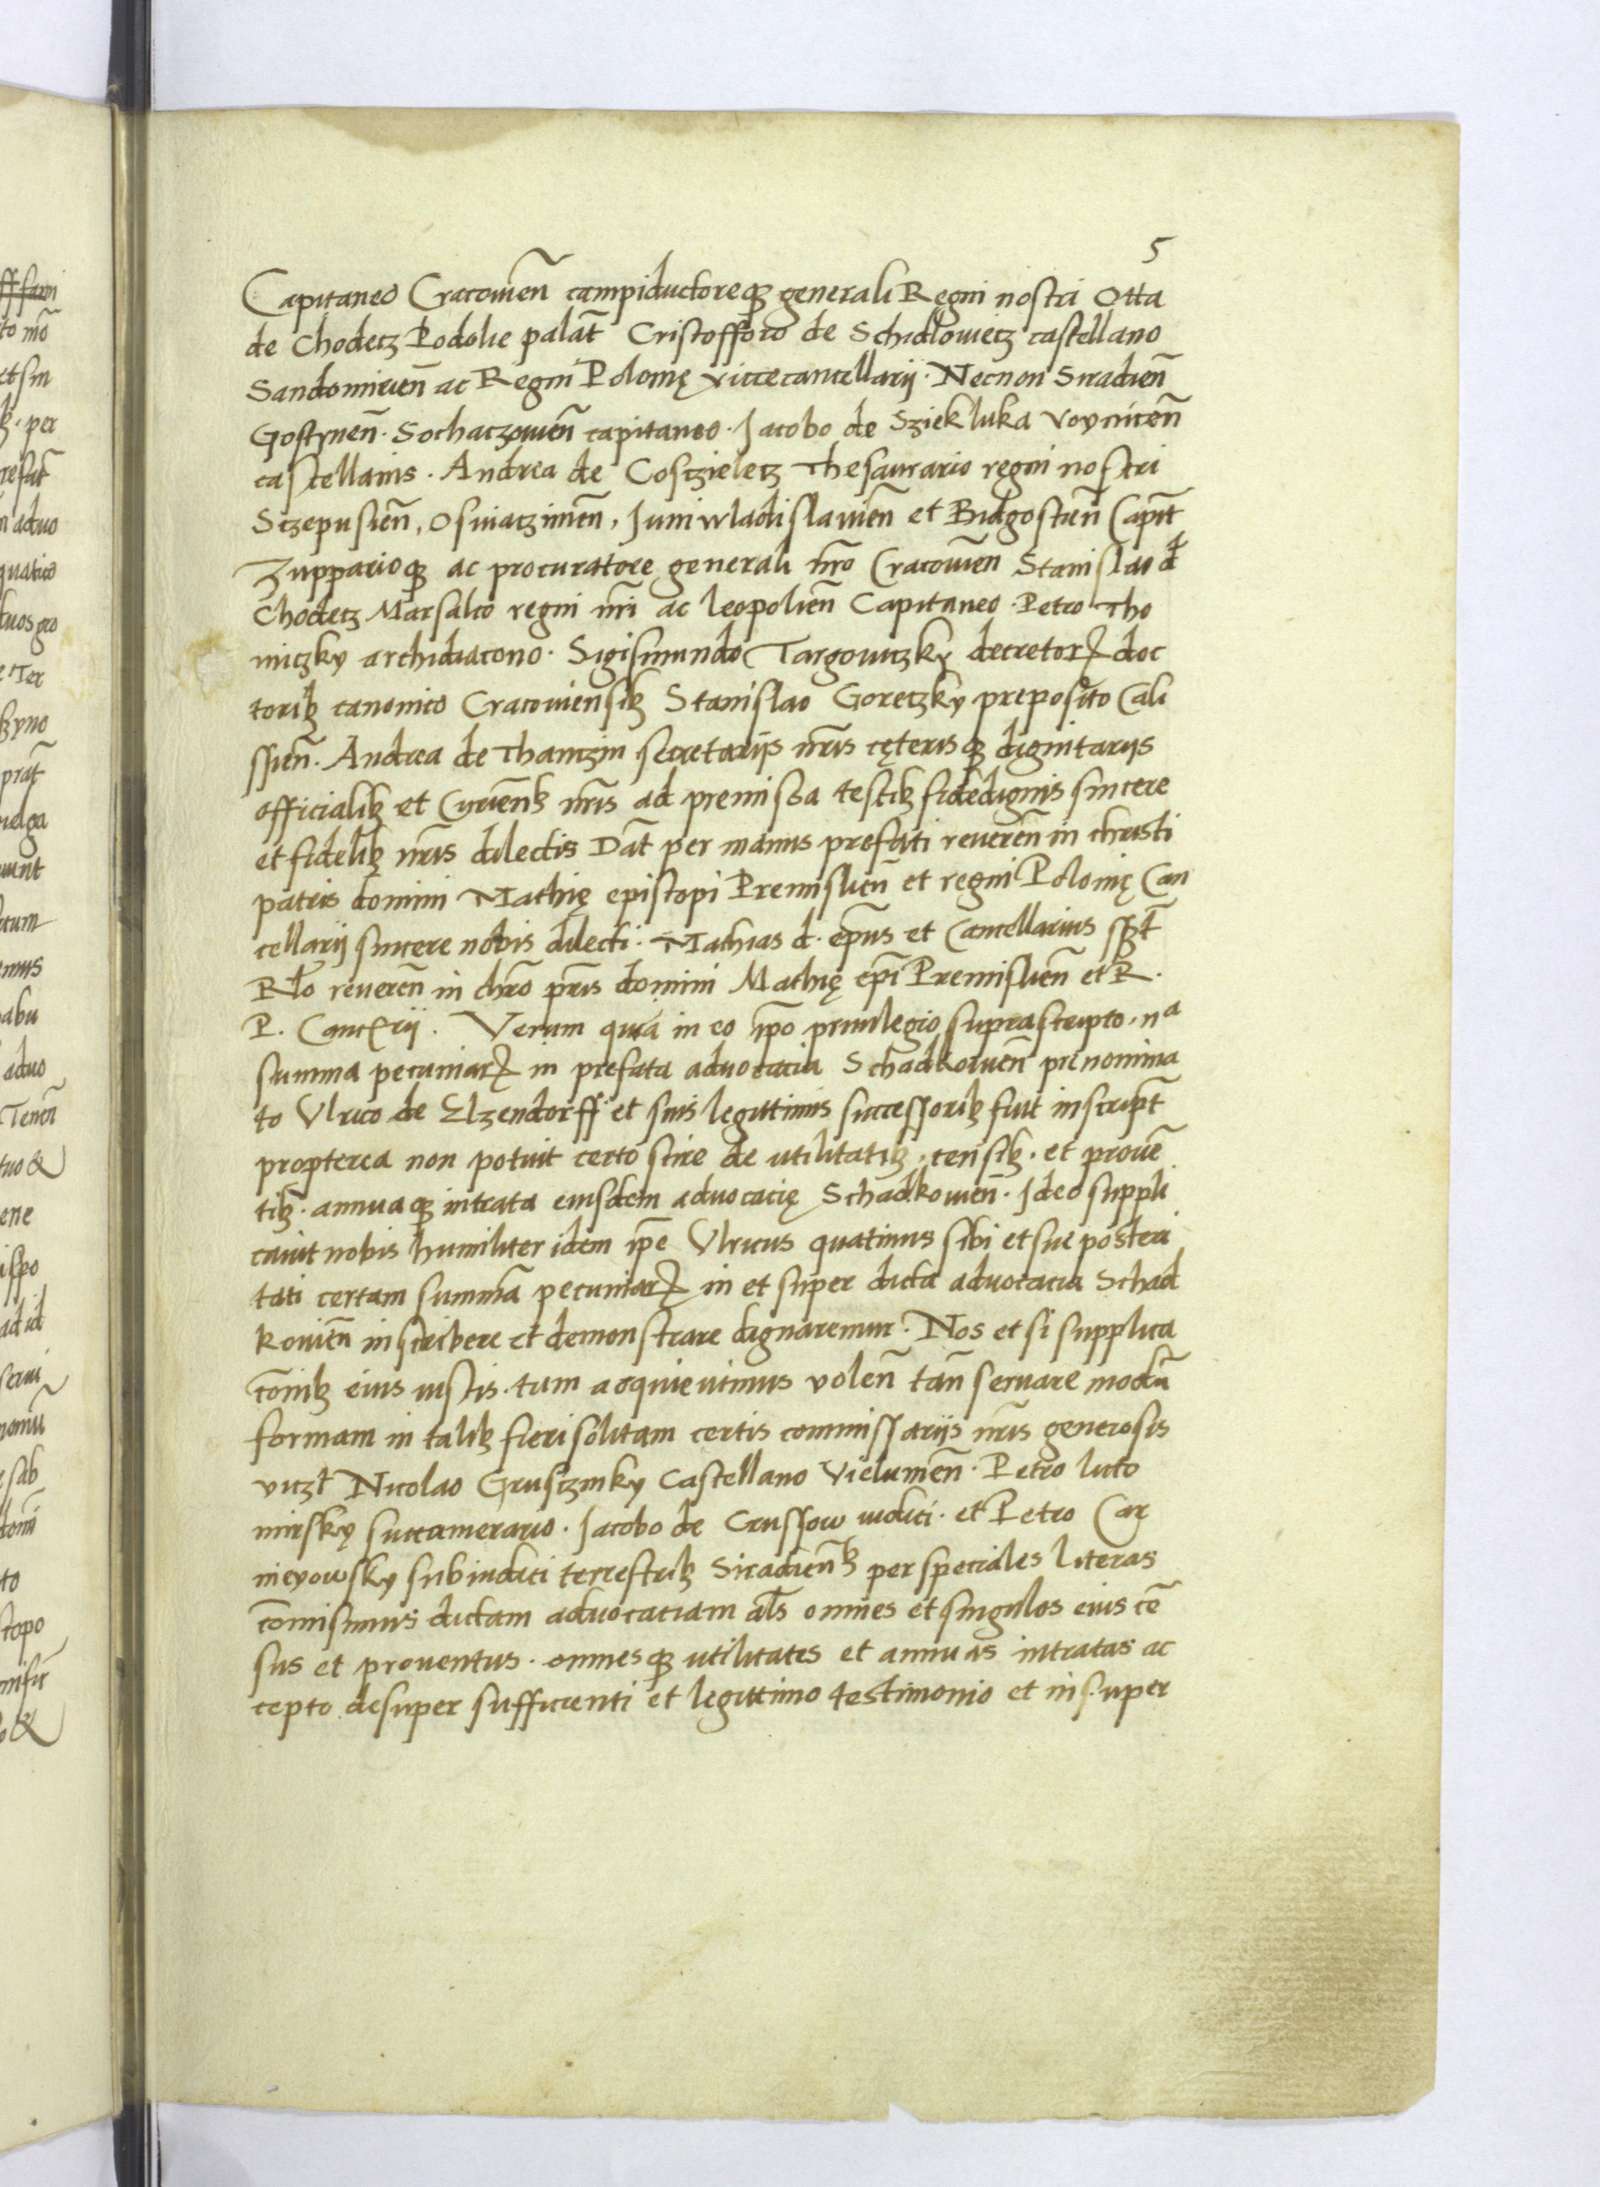 5
Capitaneo Cracovien̄ campiductoreqꝫ generali Regni nostri Otta
de Chodetz Podolie palat̄ Cristofforo de Schidlowietz castellano
Sandomirien̄ ac Regni Polonię vicecancellarij · Necnon Siradien̄
Gostynen̄ · Sochaczowien̄ capitaneo · Jacobo de Sziekluka Voynicen̄
castellanis · Andrea de Cosczieletz Thesaurario regni nostri
Sczepusien̄, Osviatzimen̄, Juniwladislavien̄ et Bidgostien̄ Capit̄
Zupparioqꝫ ac procuratore generali nr̄o Cracovien̄ Stanislao d
Chodetz Marsalco regni nr̄i ac leopolien̄ Capitaneo · Petro Tho
miczky archidiacono · Sigismundo Targowiczky decretorꝝ doc
toribꝫ canonico Cracoviensibꝫ Stanislao Goreczky preposito Cali
ssien̄ · Andrea de Thanczin secretariis nr̄is cęterisqꝫ dignitariis
officialibꝫ et Curien̄bꝫ nr̄is ad premissa testibꝫ fidedignis sincere
et fidelibꝫ nr̄is dilectis Dat̄ per manus prefati reveren̄ in christi
patris domini Mathię episcopi Premislien̄ et regni Polonię Can
cellarij sincere nobis dilecti · Mathias d. ep̄us et Cancellarius sszt̄
Rl̄o reveren̄ in chr̄o pr̄is domini Mathię ep̄i Premislien̄ et R.
P. Canc̄rij. Verum quia in eo ip̄o privilegio suprascripto · nª
summa pecuniarꝝ in prefata advocacia Schadkovien̄ prenomina
to Ulrico de Elzendorff et suis legittimis successoribꝫ fuit inscript̄
propterea non potuit certo scire de utilitatibꝫ · censibꝫ · et proven̄
tibꝫ · annuaqꝫ intrata eiusdem advocacię Schadkovien̄ · Ideo suppli
cavit nobis humiliter idem ip̄e Ulricus quatinus sibi et sue posteri
tati certam summā pecuniarꝝ in et super dicta advocacia Schad
kovien̄ inscribere et demonstrare dignaremur · Nos et si supplica
cōnibꝫ eius iustis · tum acquievimus volen̄ tan̄ servare modū
formam in talibꝫ fieri solitam certis commissariis nr̄is generosis
viczt̄ Nicolao Grusczinsky Castellano Vielunien̄ · Petro luto
mirsky succamerario · Jacobo de Crussow iudici · et Petro Car
nicyowsky subiudici terrestribꝫ Siradien̄bꝫ per speciales literas
cōmisimus dictam advocaciam al̄s omnes et singulos eius cē
sus et proventus · omnesqꝫ utilitates et annuas intratas ac
cepto desuper sufficienti et legittimo testimonio et insuper